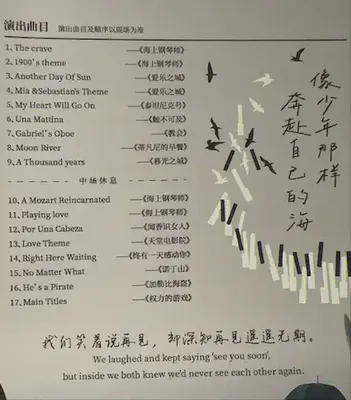 演出曲目 演出曲目及顺序以现场为准
1、The crave ——《海上钢琴师》
2、1900's theme ——《海上钢琴师》
3、Another Day Of Sun ——《爱乐之城》
4、Mia &Sebastian's Theme ——《爱乐之城》
5、My Heart Will Go On ——《泰坦尼克号》
6、Una Mattina ——《触不可及》
7、Gabriel's Oboe ——《教会》
8、Moon River ——《蒂凡尼的早餐》
9、A Thousand years ——《暮光之城》
中场休息
10、A Mozart Reincarnated ——《海上钢琴师》
11、Playing love ——《海上钢琴师》
12、Por Una Cabeza ——《闻香识女人》
13、Love Theme ——《天堂电影院》
14、Right Here Waiting ——《终有一天感动你》
15、No Matter What ——《诺丁山》
16、He's a Pirate ——《加勒比海盗》
17、Main Titles ——《权力的游戏》
像少年那样
奔赴自己的海
我们笑着说再见，却深知再见遥遥无期。
We laughed and kept saying 'see you soon',
but inside we both knew we'd never see each other again.